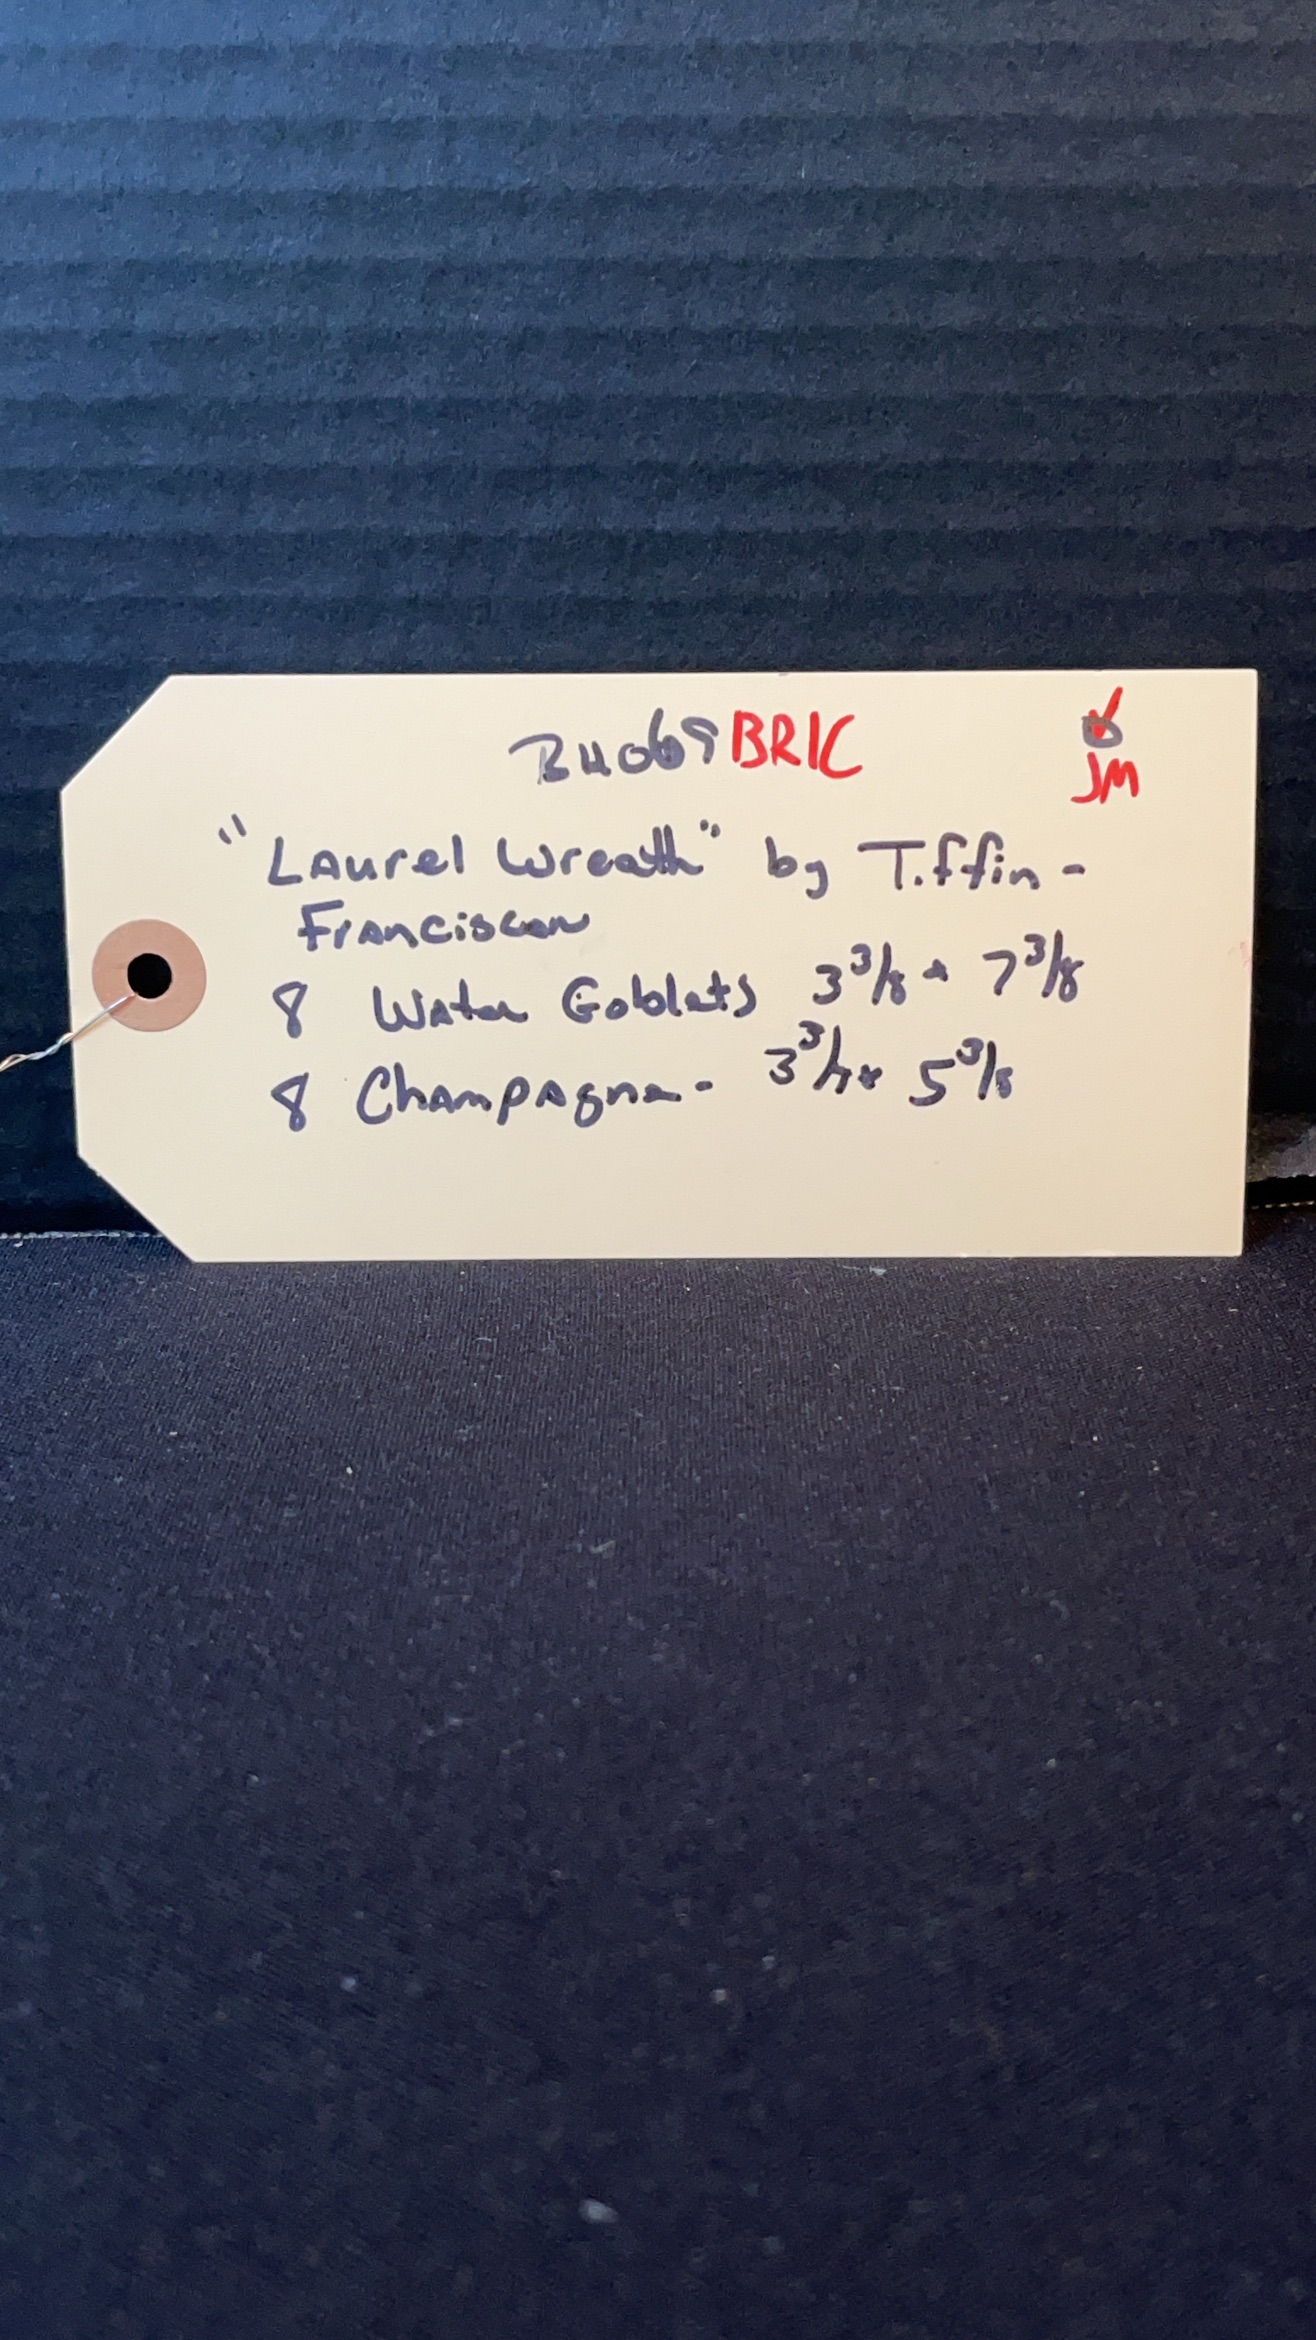 BH069BRIC
JM
"Laurel Wreath" by Tiffin-
Franciscan
8 Water Goblets 3 3/8 x 7 3/8
8 Champagne- 3 3/4 x 5 3/8